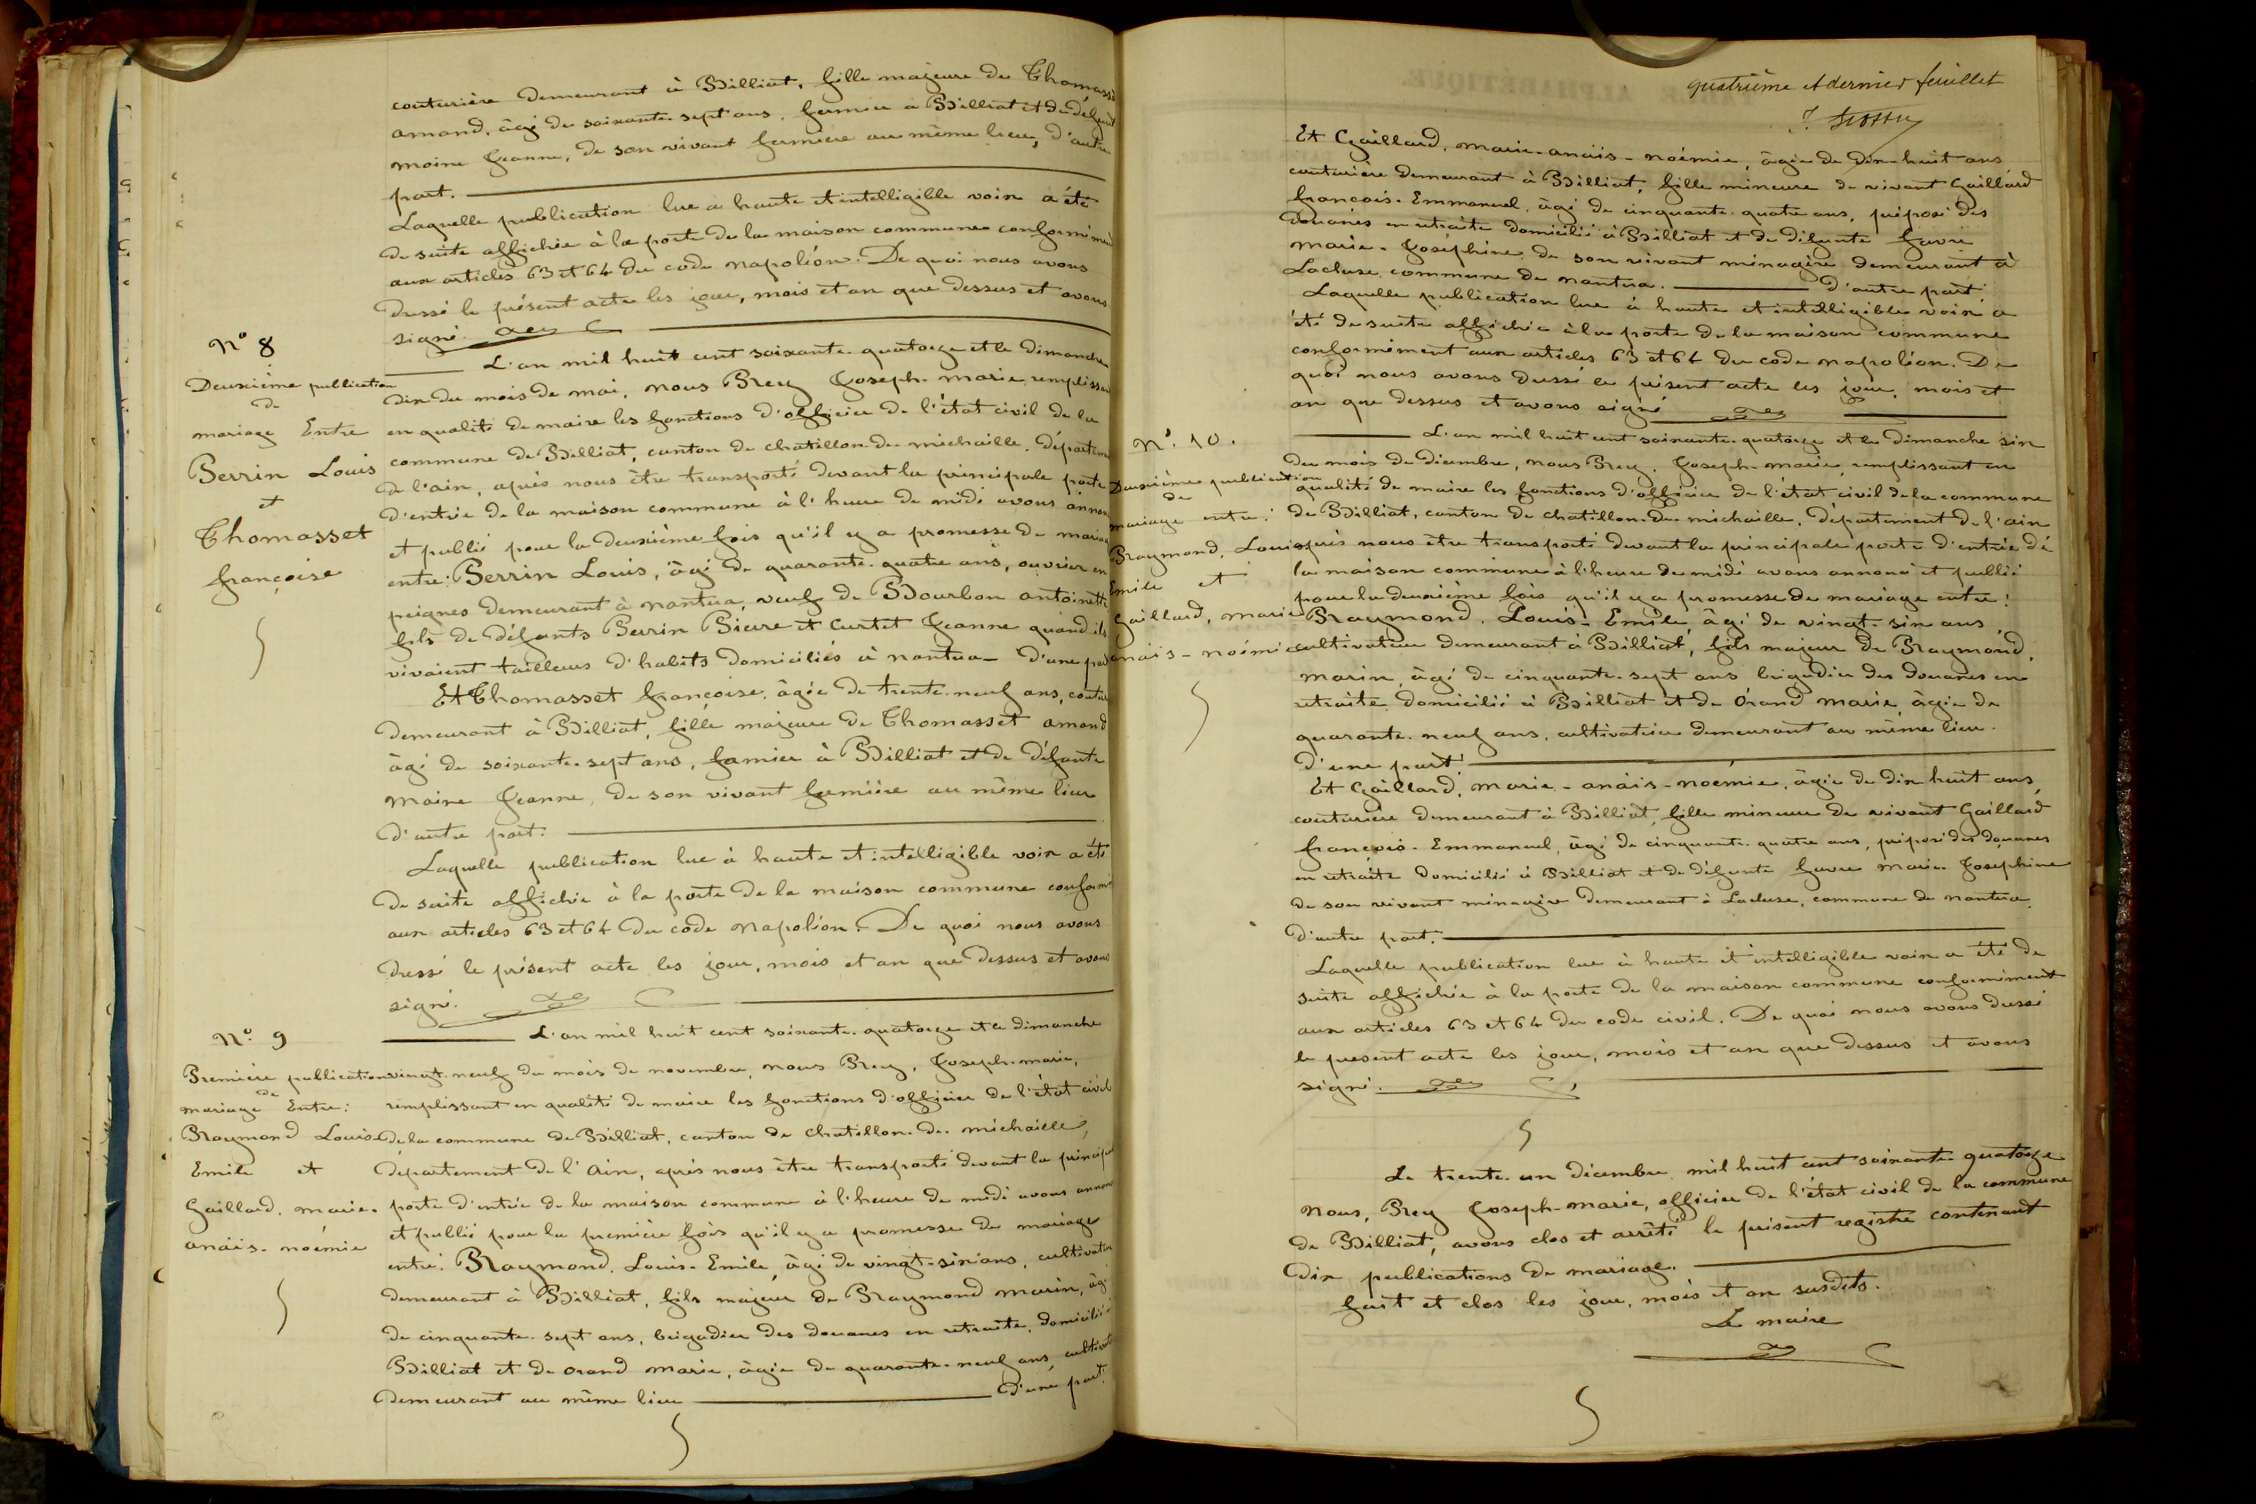 couturière demeurant à Billiat, fille majeure de Thomasset
amand, âgé de soixante-sept ans, fermier à Billiat et de défunte
moine Jeanne, de son vivant fermière au même lieu, d'autre
part.
Laquelle publication lue à haute et intelligible voix a été
de suite affichée à la porte de la maison commune conformément
aux articles 63 et 64 du code napoléon. De quoi nous avons
dressé le présent acte les jour, mois et an que dessus et avons
signé.
N° 8
Deuxième publication
de
mariage Entre
Perrin Louis
et
Thomasset
françoise
L'an mil huit cent soixante-quatorze et le Dimanche
dix du mois de mai, nous Brey Joseph-marie, remplissant
en qualité de maire les fonctions d'officier de l'état civil de la
commune de Billiat, canton de chatillon-de-michaille, département
de l'ain, après nous être transporté devant la principale porte
d'entrée de la maison commune à l'heure de midi avons annoncé
et publié pour la deuxième fois qu'il y a promesse de mariage
entre: Perrin Louis, âgé de quarante-quatre ans, ouvrier en
peignes demeurant à nantua, veuf de Bourbon antoinette
fils de défunts Perrin Pierre et Curtet Jeanne quand ils
vivaient tailleurs d'habits domiciliés à nantua - D'une part
Et Thomasset françoise, âgée de trente-neuf ans, couturière
demeurant à Billiat, fille majeure de Thomasset amand
âgé de soixante-sept ans, fermier à Billiat et de défunte
moine Jeanne, de son vivant fermière au même lieu
d'autre part.
Laquelle publication lue à haute et intelligible voix a été
de suite affichée à la porte de la maison commune conformément
aux articles 63 et 64 du code napoléon. De quoi nous avons
dressé le présent acte les jour, mois et an que dessus et avons
signé.
N° 9
Première publication
de
mariage Entre:
Raymond Louis
Emile et
Gaillard, marie-
anaïs-noémie
L'an mil huit cent soixante-quatorze et le dimanche
vingt-neuf du mois de novembre, nous Brey, Joseph-marie,
remplissant en qualité de maire les fonctions d'officier de l'état civil
de la commune de Billiat, canton de chatillon-de-michaille,
département de l'Ain, après nous être transporté devant la principale
porte d'entrée de la maison commune à l'heure de midi avons annoncé
et publié pour la première fois qu'il y a promesse de mariage
entre: Raymond, Louis-Emile, âgé de vingt-six ans, cultivateur
demeurant à Billiat, fils majeur de Raymond marin, âgé
de cinquante-sept ans, brigadier des douanes en retraite, domicilié à
Billiat et de orand marie, âgée de quarante-neuf ans, cultivatrice
demeurant au même lieu D'une part.
quatrième et dernier feuillet
Et Gaillard, marie-anaïs-noémie, âgée de dix-huit ans
couturière demeurant à Billiat, fille mineure de vivant Gaillard
françois-Emmanuel, âgé de cinquante-quatre ans, préposé des
douanes en retraite domicilié à Billiat et de défunte favre
marie-Joséphine, de son vivant ménagère demeurant à
Lacluse, commune de nantua. D'autre part.
Laquelle publication lue à haute et intelligible voix a
été de suite affichée à la porte de la maison commune
conformément aux articles 63 et 64 du code napoléon. De
quoi nous avons dressé le présent acte les jour, mois et
an que dessus et avons signé
N° 10.
Deuxième publication
de
mariage entre:
Raymond, Louis
Emile et
Gaillard, marie
anaïs-noémie
L'an mil huit cent soixante-quatorze et le dimanche six
du mois de décembre, nous Brey, Joseph-marie, remplissant en
qualité de maire les fonctions d'officier de l'état civil de la commune
de Billiat, canton de chatillon-de-michaille, département de l'ain
après nous être transporté devant la principale porte d'entrée de
la maison commune à l'heure de midi avons annoncé et publié
pour la deuxième fois qu'il y a promesse de mariage entre:
Raymond, Louis-Emile, âgé de vingt-six ans,
cultivateur demeurant à Billiat, fils majeur de Raymond,
marin, âgé de cinquante-sept ans brigadier des douanes en
retraite domicilié à Billiat et de Orand marie, âgée de
quarante-neuf ans, cultivatrice demeurant au même lieu.
D'une part.
Et Gaillard, marie-anaïs-noémie, âgée de dix huit ans,
couturière demeurant à Billiat, fille mineure de vivant Gaillard
françois-Emmanuel, âgé de cinquante-quatre ans, préposé des douanes
en retraite domicilié à Billiat et de défunte favre marie-Joséphine
de son vivant ménagère demeurant à Lacluse, commune de nantua.
D'autre part.
Laquelle publication lue à haute et intelligible voix a été de
suite affichée à la porte de la maison commune conformément
aux articles 63 et 64 du code civil. De quoi nous avons dressé
le présent acte les jour, mois et an que dessus et avons
signé.
Le trente-un décembre mil huit cent soixante-quatorze
Nous, Brey Joseph-marie, officier de l'état civil de la commune
de Billiat, avons clos et arrêté le présent registre contenant
dix publications de mariage.
fait et clos les jour, mois et an susdits.
Le maire